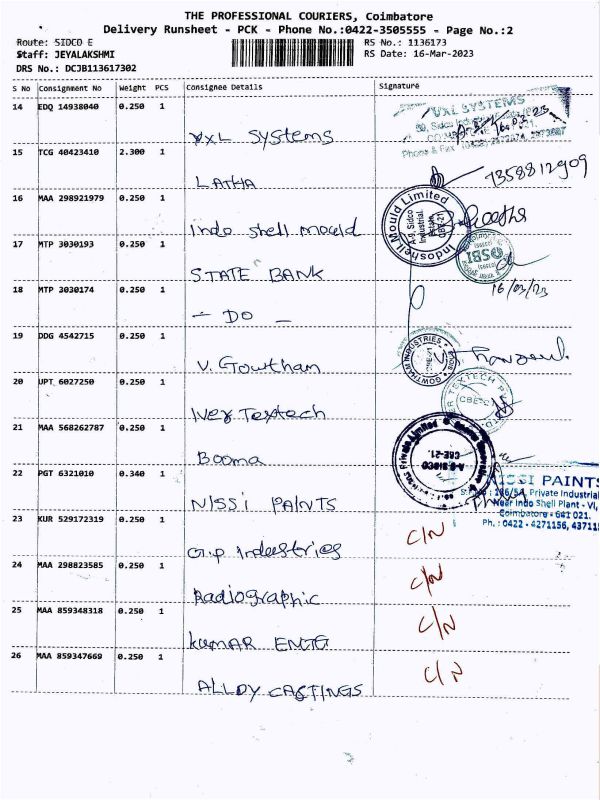 THE PROFESSIONAL COURIERS, Coimbatore
Delivery Runsheet - PCK - Phone No.:0422-3505555 - Page No.:2
Route: SIDCO E
Staff: JEYALAKSHMI
DRS No.: DCJB113617302
RS No.: 1136173
RS Date: 16-Mar-2023
S No Consignment No Weight PCS Consignee Details Signature
14 EDQ 14938040 0.250 1
VXL Systems
VXL SYSTEMS
15 TCG 40423410 2.300 1
LATHA
7358812909
16 MAA 298921979 0.250 1
Indo shell mould
Indoshell Mould Limited
A-9, Sidco
Industrial
Estate
CBE-21
17 MTP 3030193 0.250 1
STATE BANK
SBI
18 MTP 3030174 0.250 1
- DO -
16/03/23
19 DDG 4542715 0.250 1
V. Gowtham
GOWTHAM INDUSTRIES
CBE-21
20 UPT 6027250 0.250 1
Iver Textech
CBE
21 MAA 568262787 0.250 1
Booma
Private Limited
A-9, SIDCO
CBE-21.
22 PGT 6321010 0.340 1
NISSI PAINTS
NISSI PAINTS
Private Industrial
Near Indo Shell Plant - VI,
Coimbatore - 641 021.
Ph. : 0422 - 4271156, 43711
23 KUR 529172319 0.250 1
G.P Industries
C/N
24 MAA 298823585 0.250 1
Radiographic
C/N
25 MAA 859348318 0.250 1
KUMAR ENTG
C/N
26 MAA 859347669 0.250 1
ALLOY CASTINGS
C/N